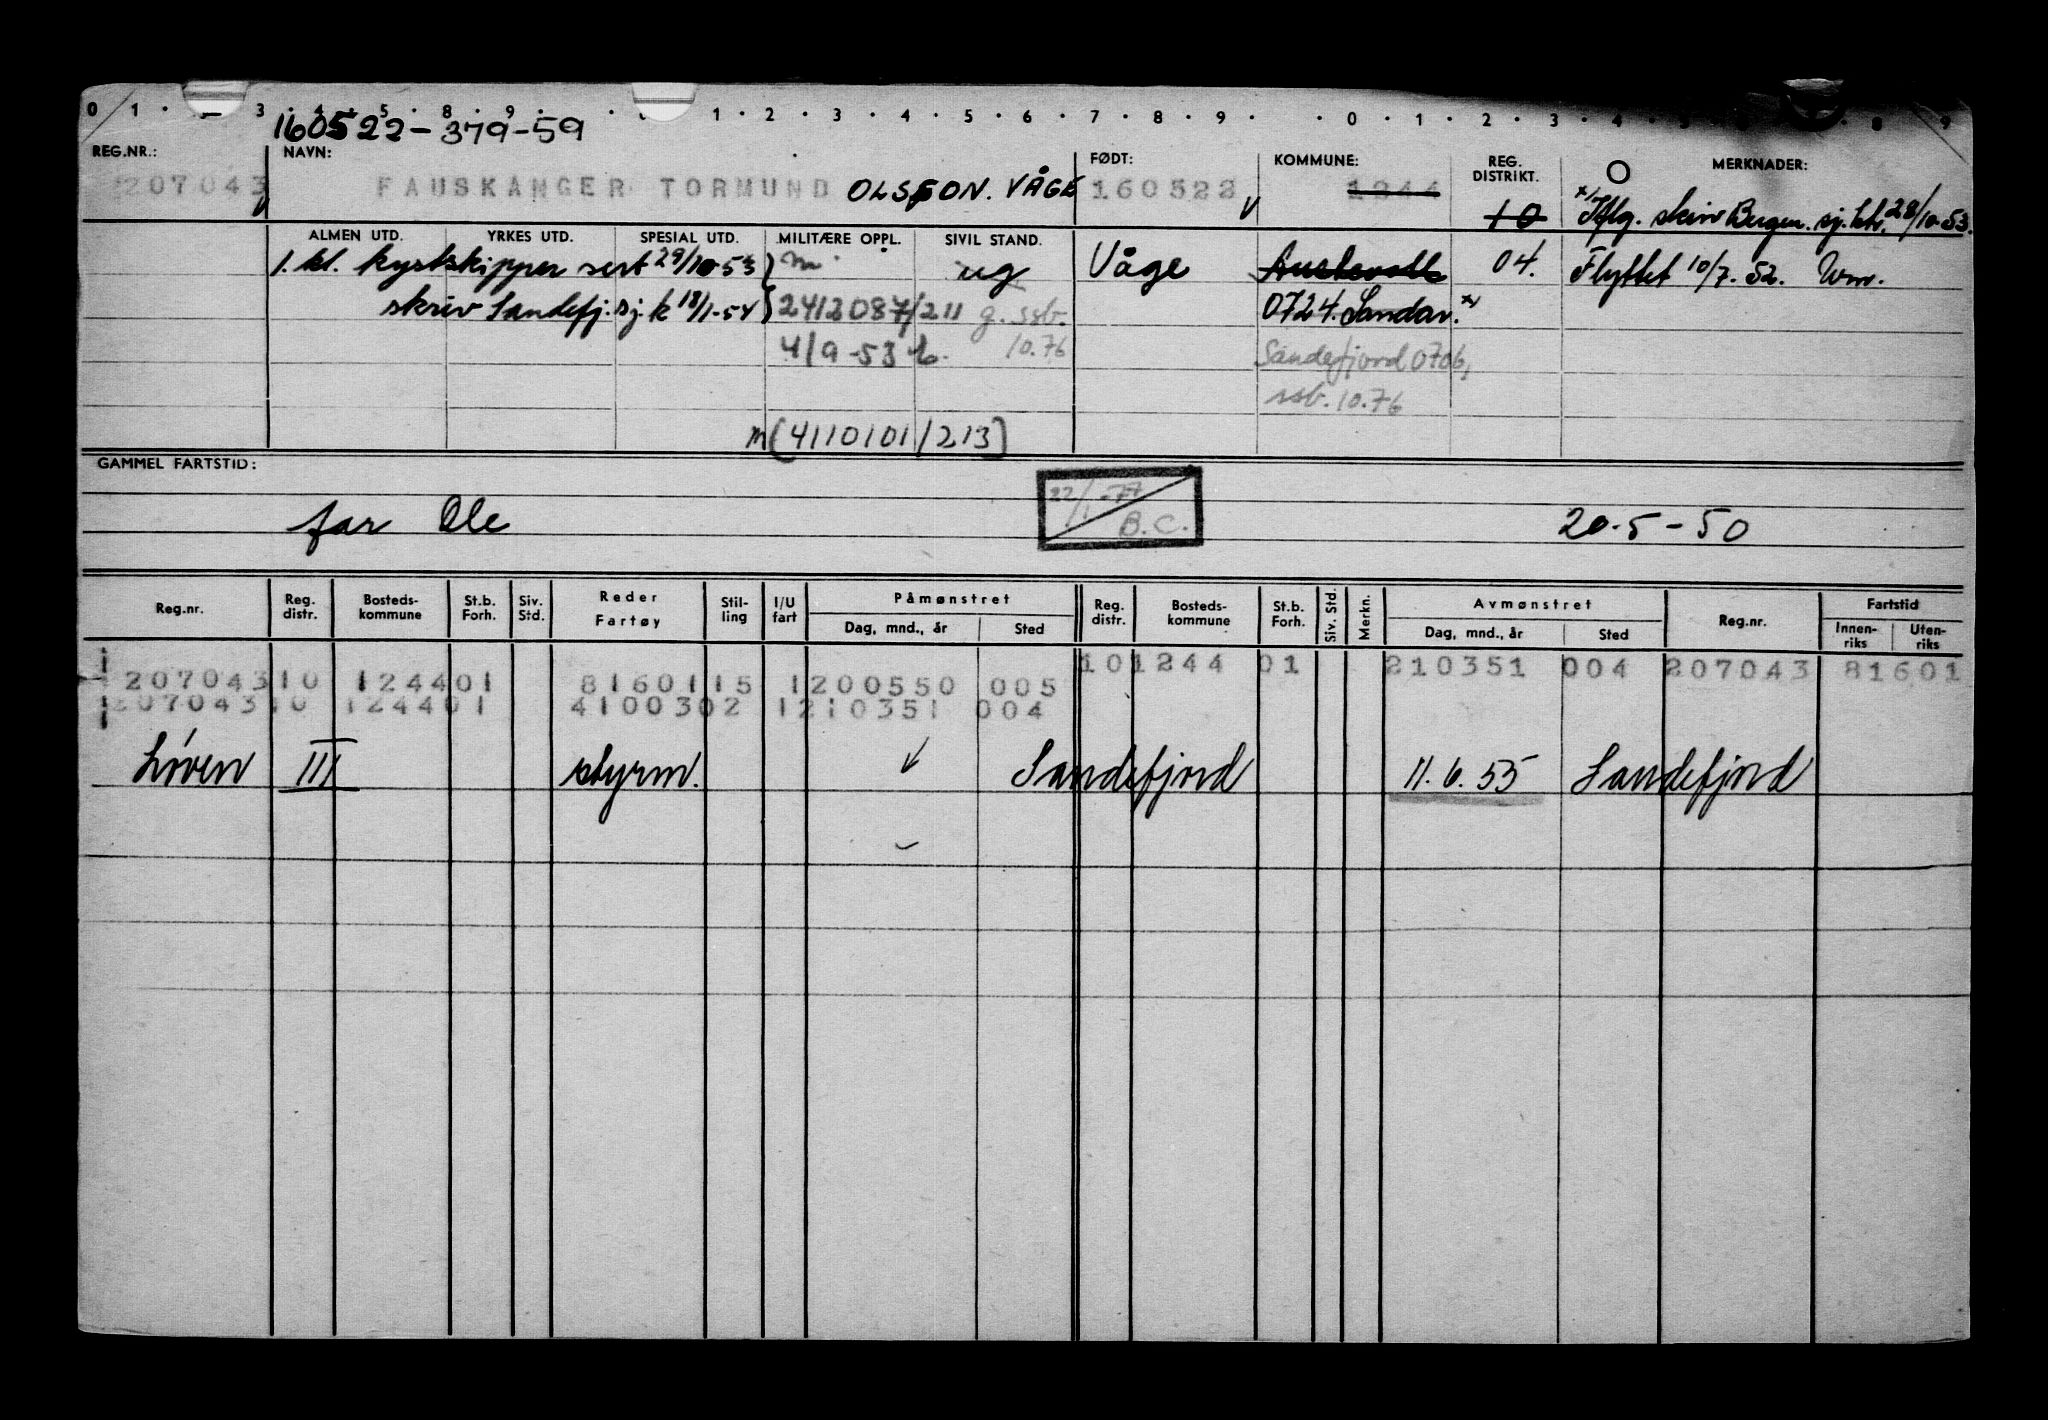 0 1 · · 3 · 4 · 5 · 8 · 9 · · 1 · 2 · 3 · 4 · 5 · 6 · 7 · 8 · 9 · · 0 · 1 · 2 · 3 · 4 · 5 · 8 9
160522-379-59
REG.NR.: NAVN: FØDT: KOMMUNE: REG. DISTRIKT. MERKNADER:
207043 FAUSKANGER TORMUND OLSSON. VÅGE 160522 1244 10 Bergen. 28/10-53.
ALMEN UTD. YRKES UTD. SPESIAL UTD. MILITÆRE OPPL. SIVIL STAND.
1. kl. kystskipper sert 29/10-53 m ug Våge Austevoll 04. Flyttet 10/7. 52. Wm.
skriv Sandefj. sj. k 18/1-54 2412087/211 g. ssb. 0724. Sandar.
4/9-53 10.76 Sandefjord 0706,
ssb. 10.76
m (4110101/213)
GAMMEL FARTSTID:
22/1-77 B.C.
far Ole 20-5-50
Reg.nr. Reg. distr. Bosteds- kommune St.b. Forh. Siv. Std. Reder Fartøy Stil- ling I/U fart Påmønstret Dag, mnd., år Sted Reg. distr. Bosteds- kommune St.b. Forh. Siv. Std. Merkn. Avmønstret Dag, mnd., år Sted Reg.nr. Fartstid Innen- riks Uten- riks
20704310 124401 8160115 1200550 005 101244 01 210351 004 207043 81601
20704310 124401 4100302 1210351 004
Løven III styrm. Sandefjord 11.6.55 Sandefjord